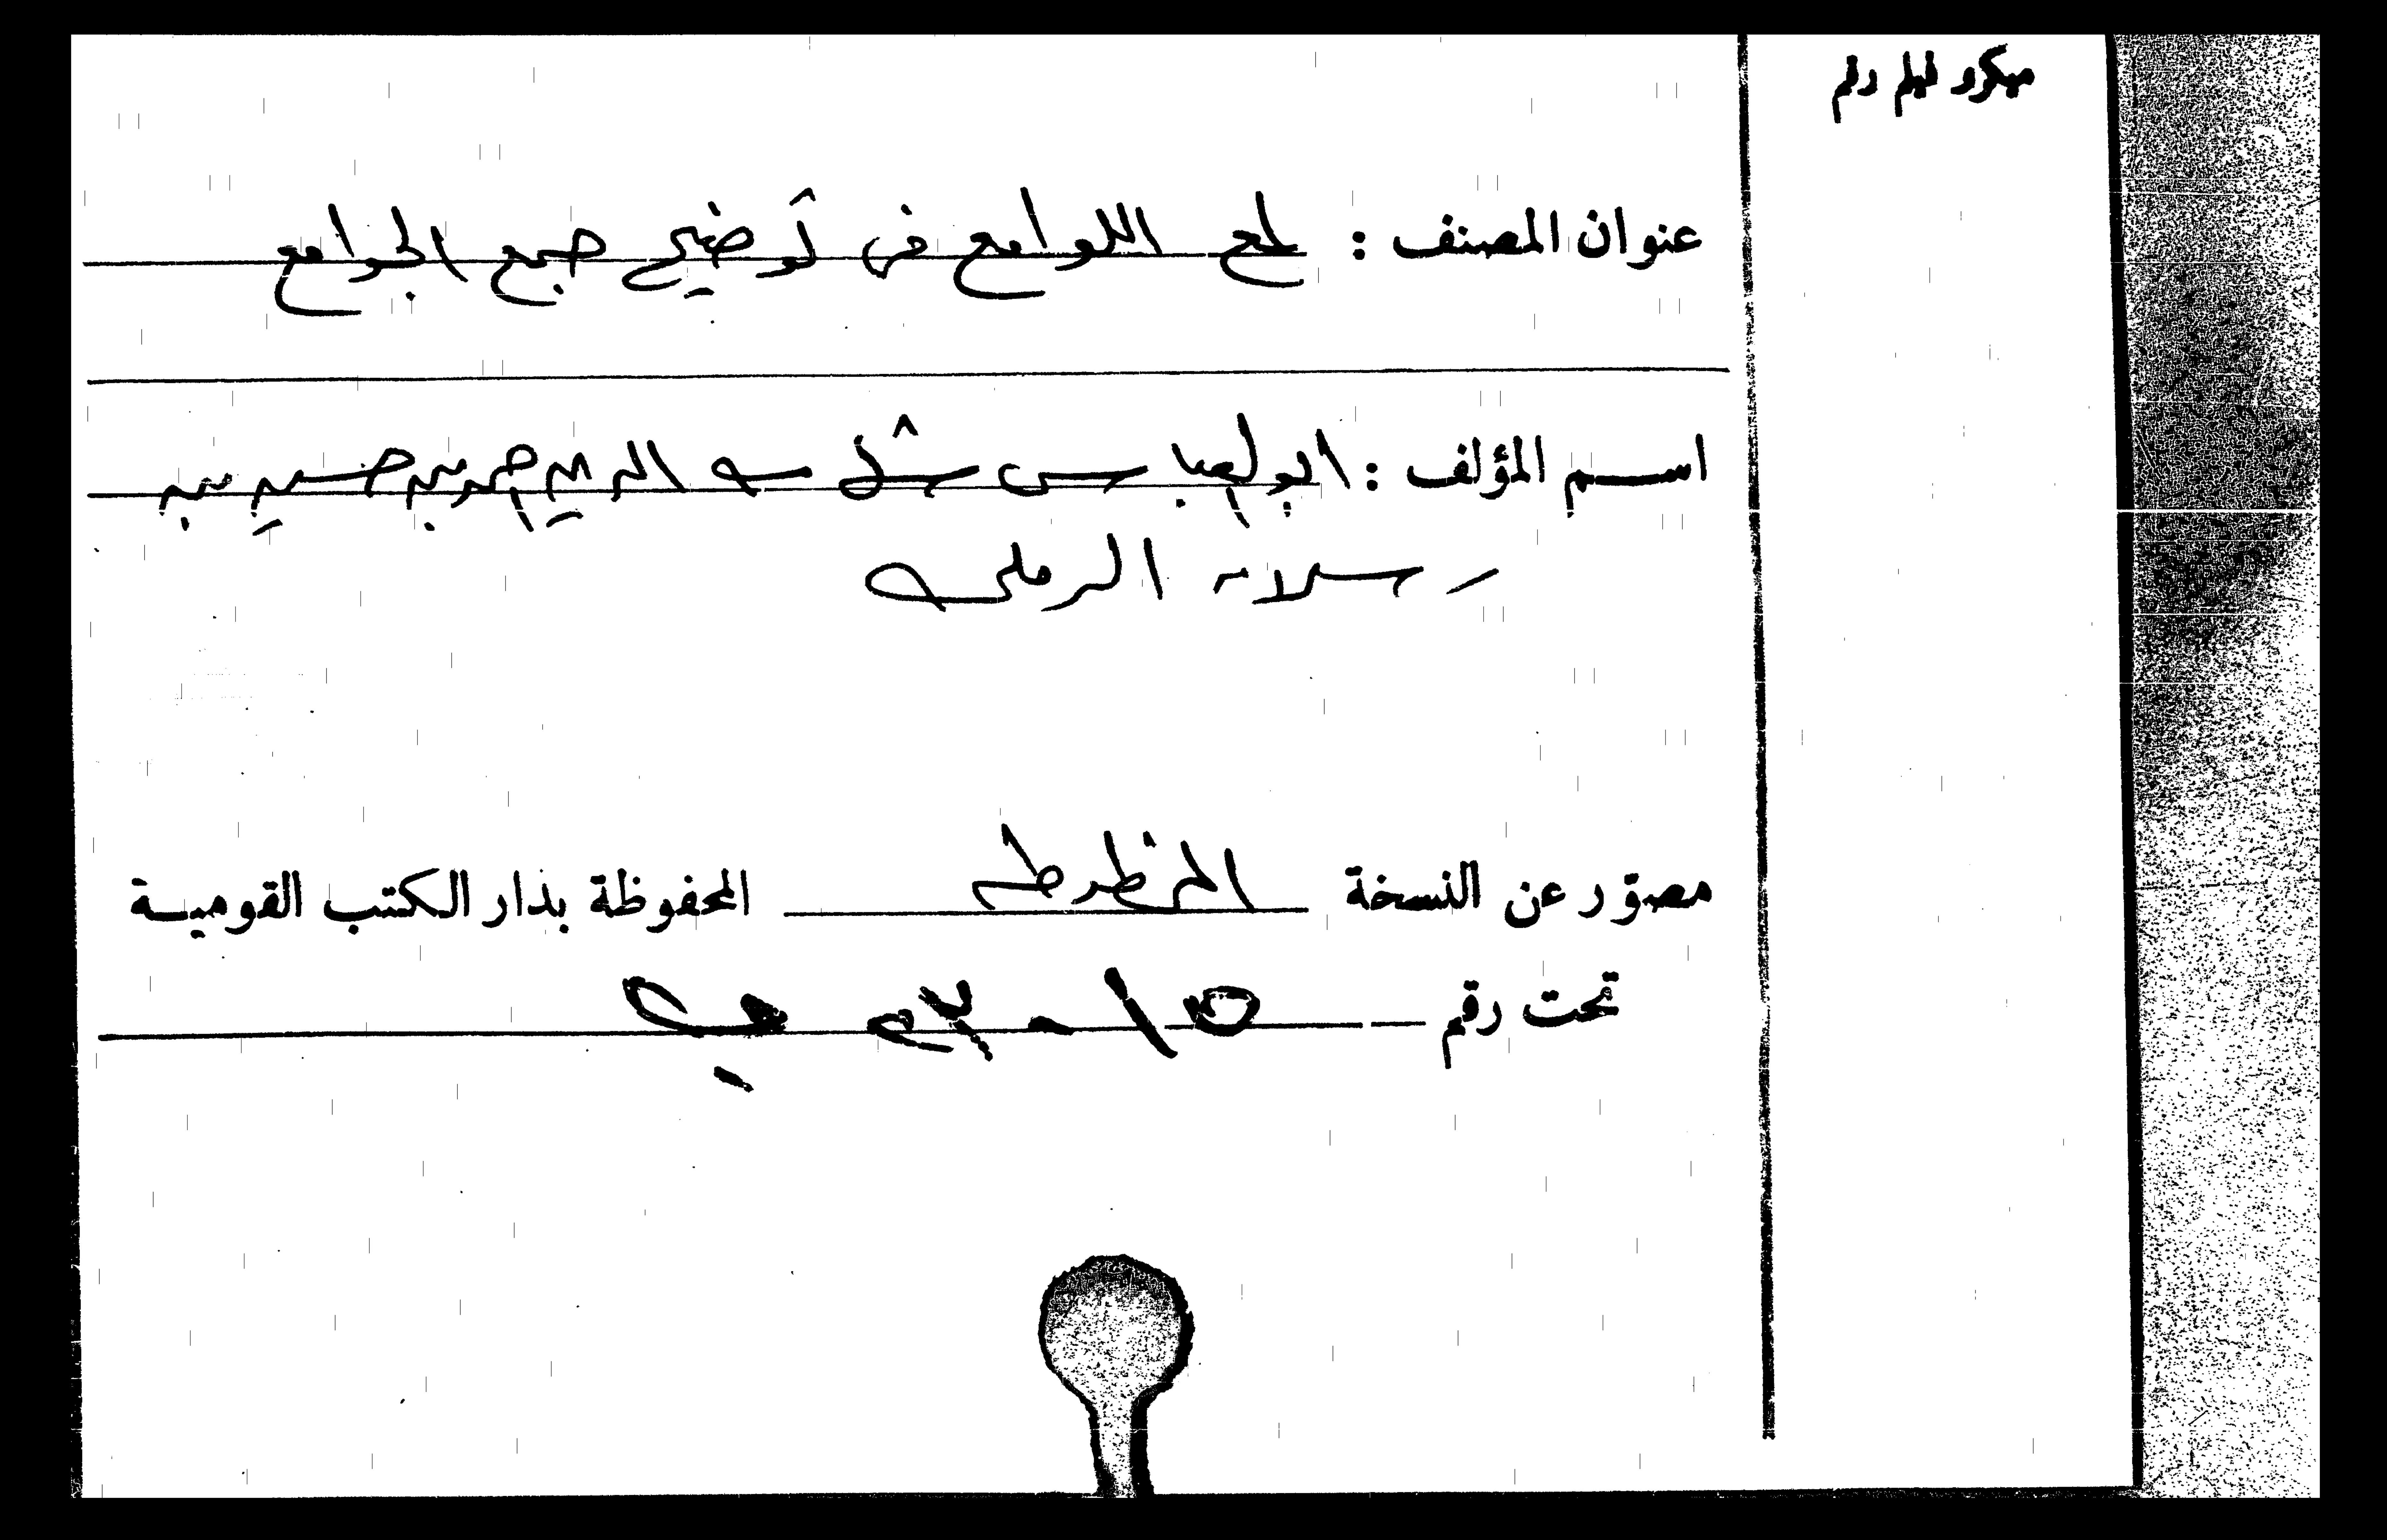 ميكروفيلم رقم
عنوان المصنف : لمع اللوامع فى توضيح جمع الجوامع
اسم المؤلف : ابو العباس شهاب الدين احمد بن حسين بن
رسلان الرملى
مصوّر عن النسخة المخطوطه المحفوظة بدار الكتب القومية
تحت رقم